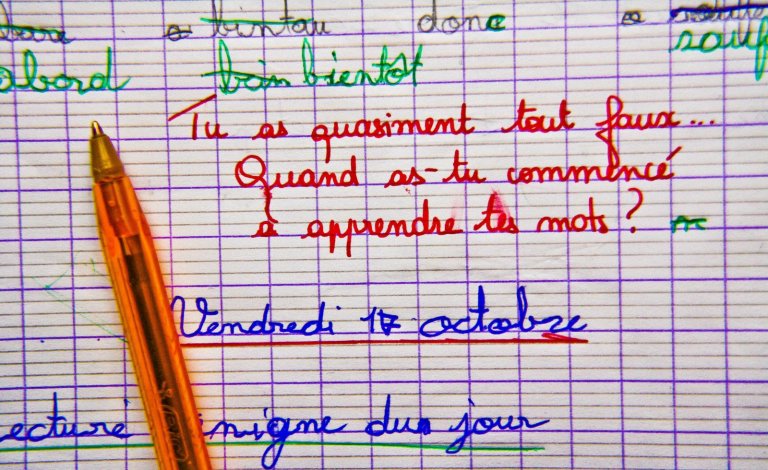 donc
abord bientôt sauf
Tu as quasiment tout faux...
Quand as-tu commencé
à apprendre tes mots ?
Vendredi 17 octobre
ecture inigne du jour